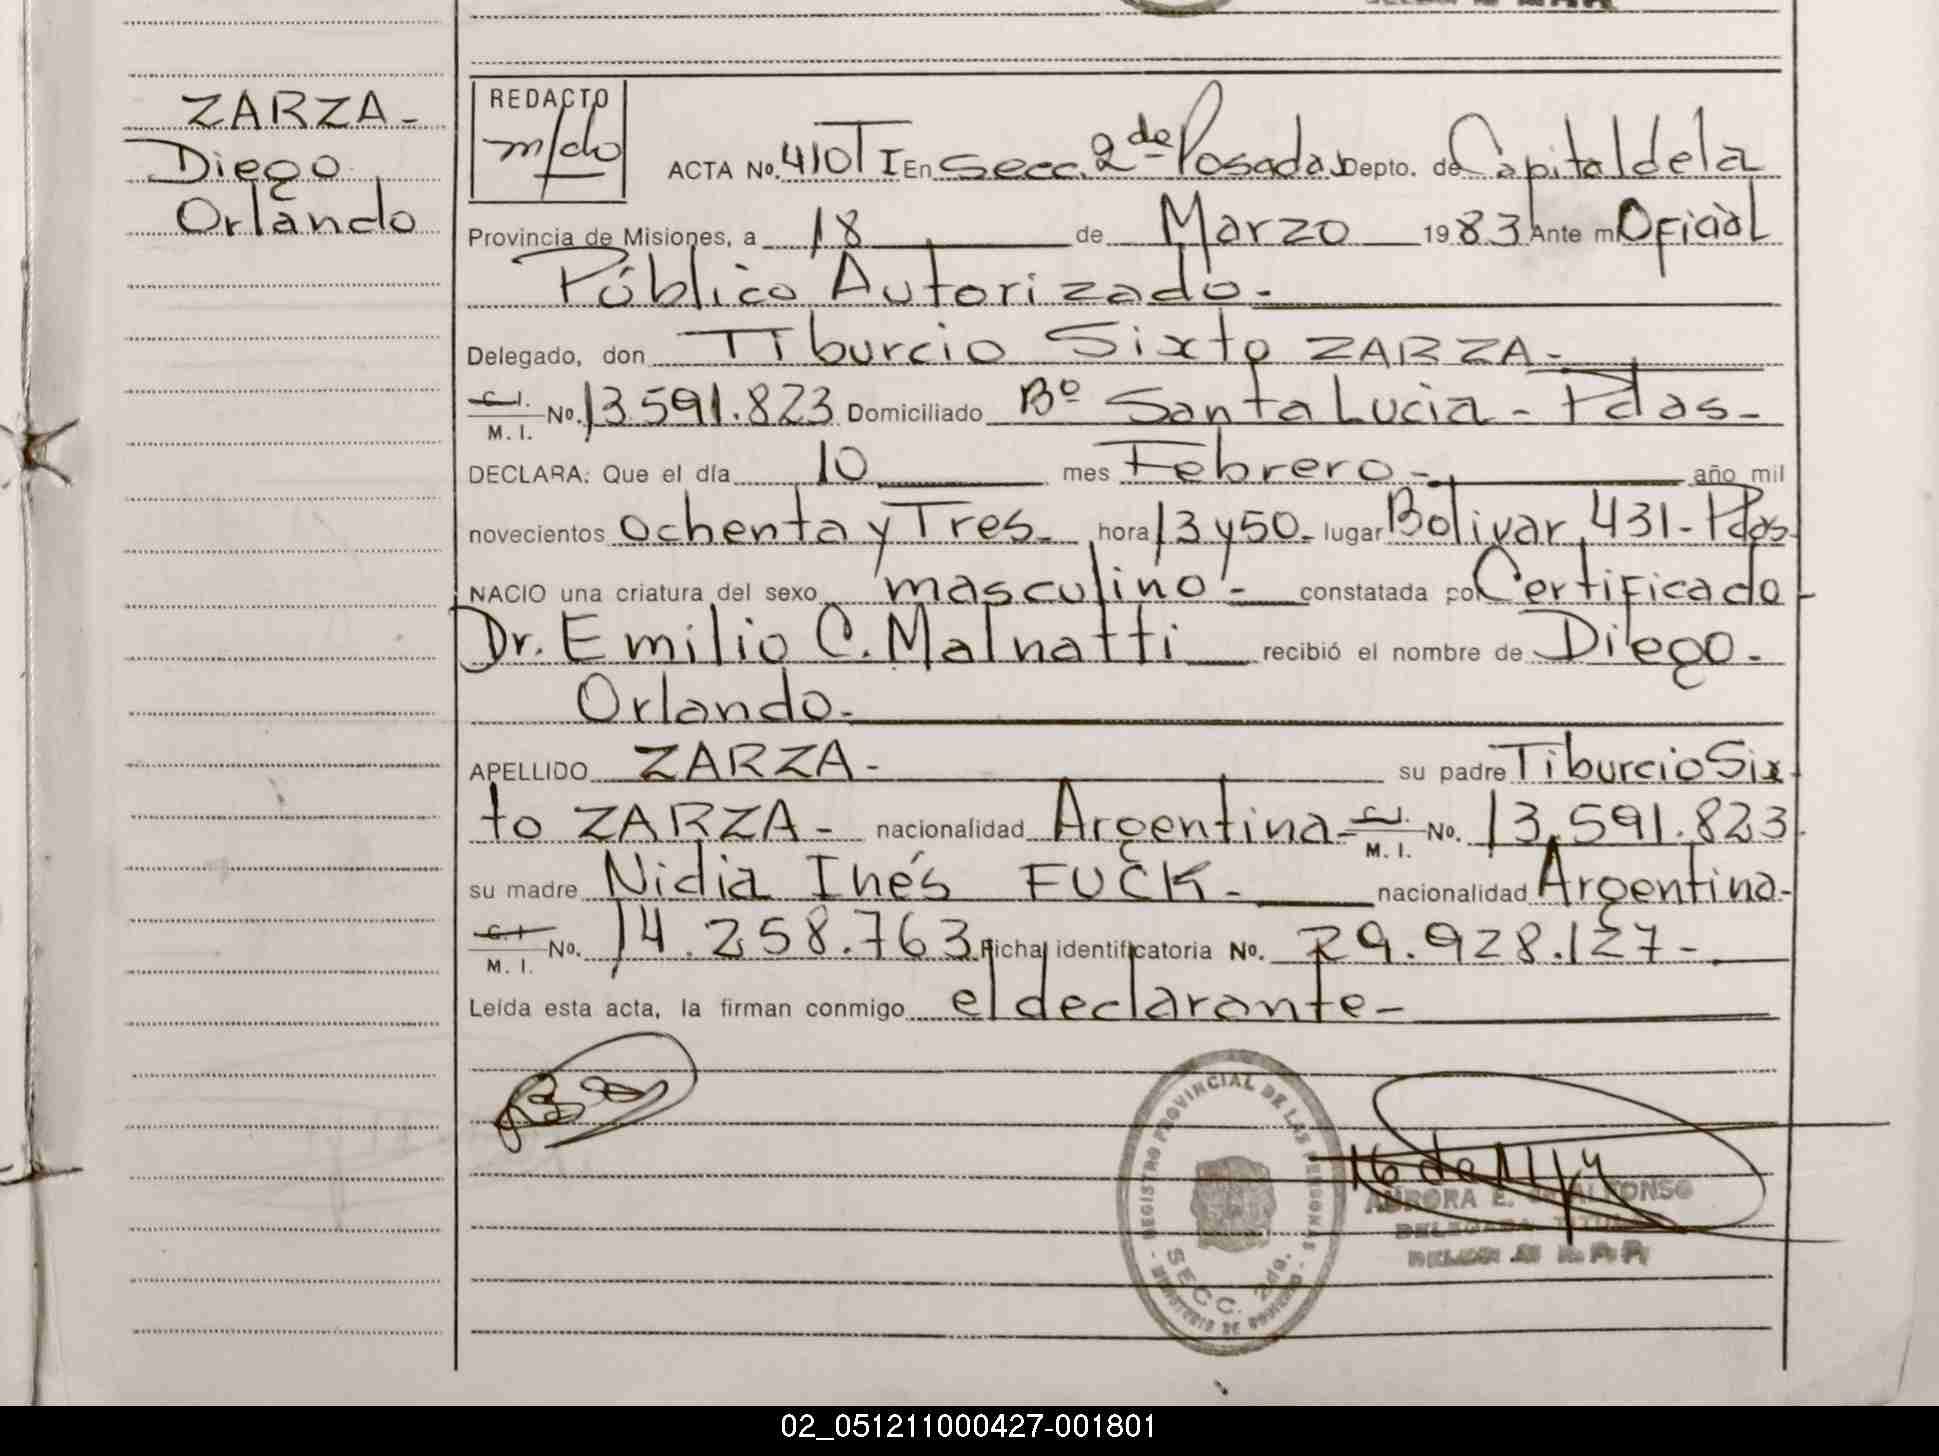 ZARZA-
Diego
Orlando
REDACTO
ACTA No. 410 T I En Secc. 2da Posadas Depto. de Capital de la
Provincia de Misiones, a 18 de Marzo 1983 Ante mi Oficial
Público Autorizado-
Delegado, don Tiburcio Sixto ZARZA-
C.I. M.I. No. 13.591.823 Domiciliado Bº Santa Lucia - Pdas-
DECLARA: Que el día 10 mes Febrero - año mil
novecientos ochenta y Tres- hora 13 y 50- lugar Bolivar 431- Pdas-
NACIO una criatura del sexo masculino - constatada por Certificado
Dr. Emilio C. Malnatti recibió el nombre de Diego-
Orlando-
APELLIDO ZARZA- su padre Tiburcio Six
to ZARZA- nacionalidad Argentina- C.I. M.I. No. 13.591.823
su madre Nidia Inés FUCK- nacionalidad Argentina-
C.I. M.I. No. 14.258.763 Ficha identificatoria No. 29.928.127-
Leída esta acta, la firman conmigo el declarante-
REGISTRO PROVINCIAL DE LAS PERSONAS
SECC. 2da.
MINISTERIO DE GOBIERNO
AURORA E. ALFONSO
DELEGADA TITULAR
02_051211000427-001801